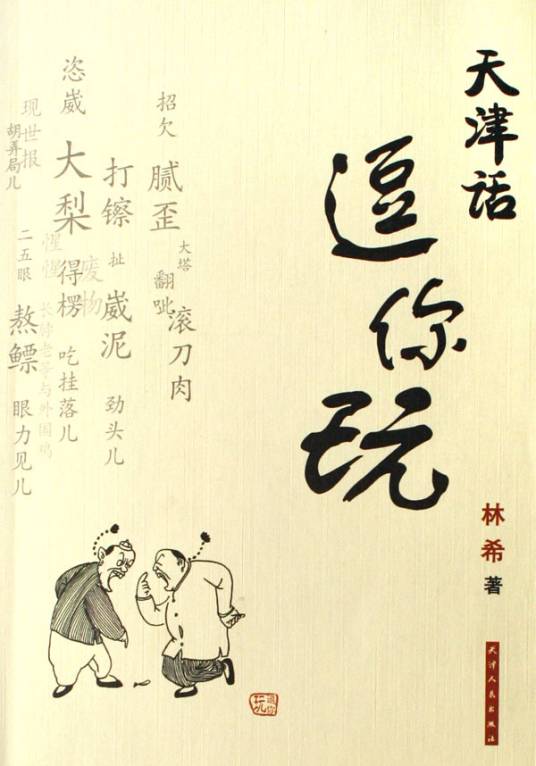 天津话
逗你玩
林希 著
天津人民出版社
大塔
翻呲
滚刀肉
招欠
腻歪
打镲
扯
崴泥
劲头儿
废物
恣崴
大梨
得楞
吃挂落儿
惺惺
现世报
胡弄局儿
二五眼
熬鳔
眼力见儿